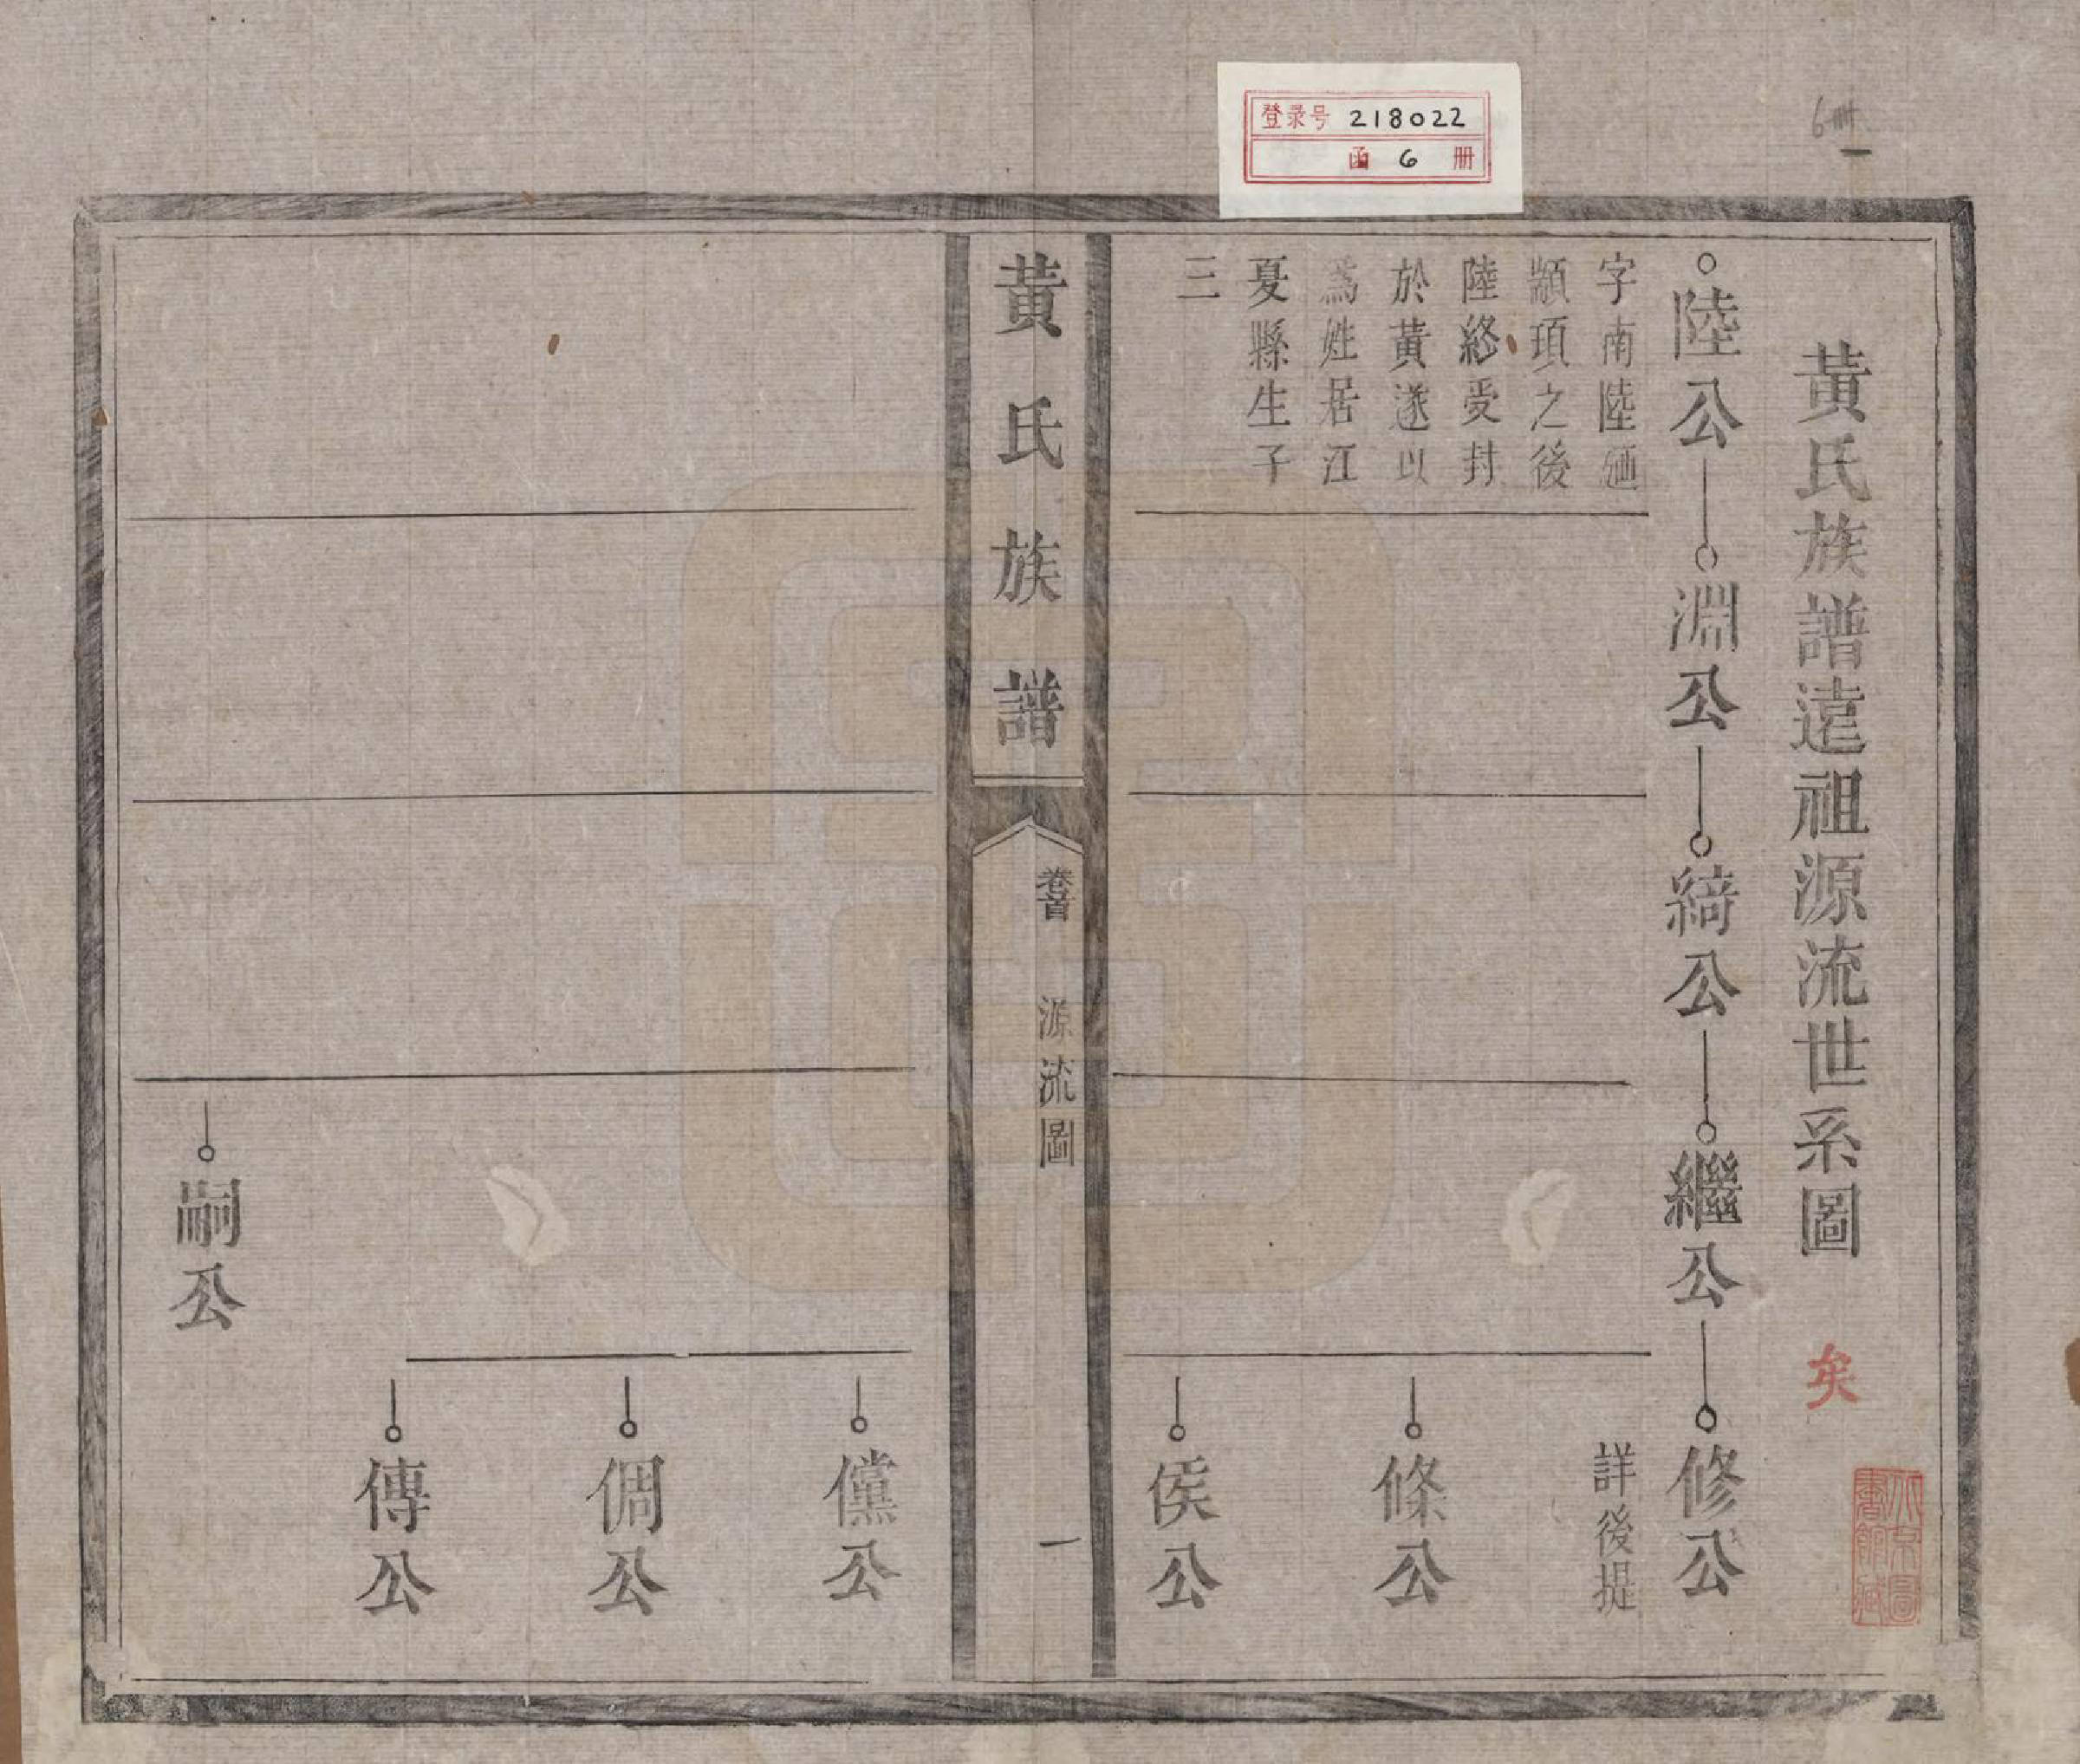 登录号 218022
函 6 册
6卌
一
黃氏族譜遠祖源流世系圖
矣
陸公
淵公
綺公
繼公
修公
字南陸廼
顓頊之後
陸終受封
於黃遂以
爲姓居江
夏縣生子
三
詳後提
條公
侯公
黃氏族譜
卷首
源流圖
一
儻公
倜公
傳公
嗣公